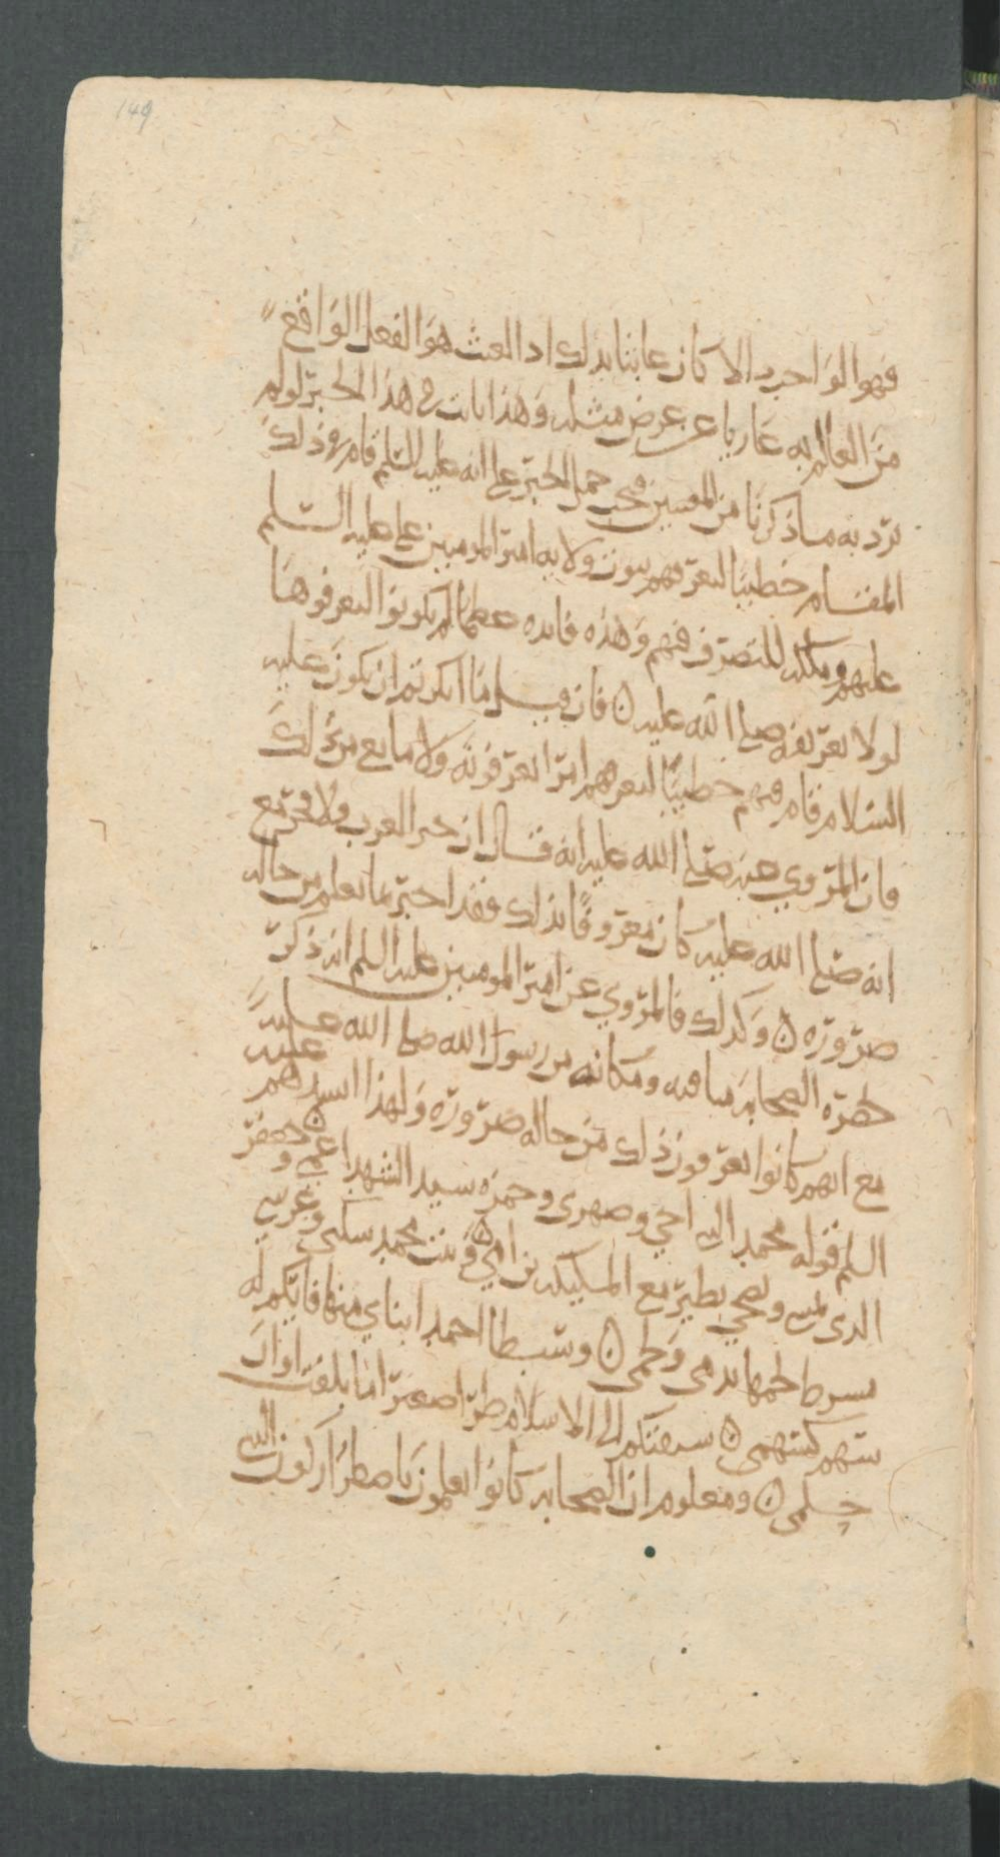 149
فهو الواجب والا كان عابثا بذلك اذ العبث هو الفعل الواقع
من العالم به عاريا عن عوض مثله وهذا ثابت في هذا الخبر لو لم
نرد به ما ذكرنا من المعنيين فيجب حمل الخبر على انه عليه السلم قام في ذلك
المقام خطيبا ليعرفهم ثبوت ولاية امير المومنين علي عليه السلم
عليهم وملكه للتصرف فيهم وهذه فايدة عظمى لم يكونوا ليعرفوها
لولا تعريفه صلى الله عليه ن فان قيل ما انكرتم ان يكون عليه
السلام قام فيهم خطيبا ليعرفهم امرا يعرفونه ولا مانع من ذلك
فان المروي عنه صلى الله عليه انه قال ان خير العرب ولا فخر مع
انه صلى الله عليه كان معروفا بذلك فقد اخبر بما يعلم من حاله
ضرورة ن وكذلك فالمروي عن امير المومنين عليه السلم انه ذكر
لحضرة الصحابة مناقبه ومكانه من رسول الله صلى الله عليه
مع انهم كانوا يعرفون ذلك من حاله ضرورة ولهذا انشدهم عليه
السلم قوله محمد النبي اخي وصهري وحمزة سيد الشهدا عمي ن وجعفر
الذي يمسي ويضحي يطير مع المليكة بن امي ن وبنت محمد سكني وعرسي
مسوط لحمها بدمي ولحمي ن وسبطا احمد ابناي منها فايكم له
سهم كسهمي ن سبقتكم الى الاسلام طرا صغيرا ما بلغت اوان
حلمي ن ومعلوم ان الصحابة كانوا يعلمون باضطرار كون النبي